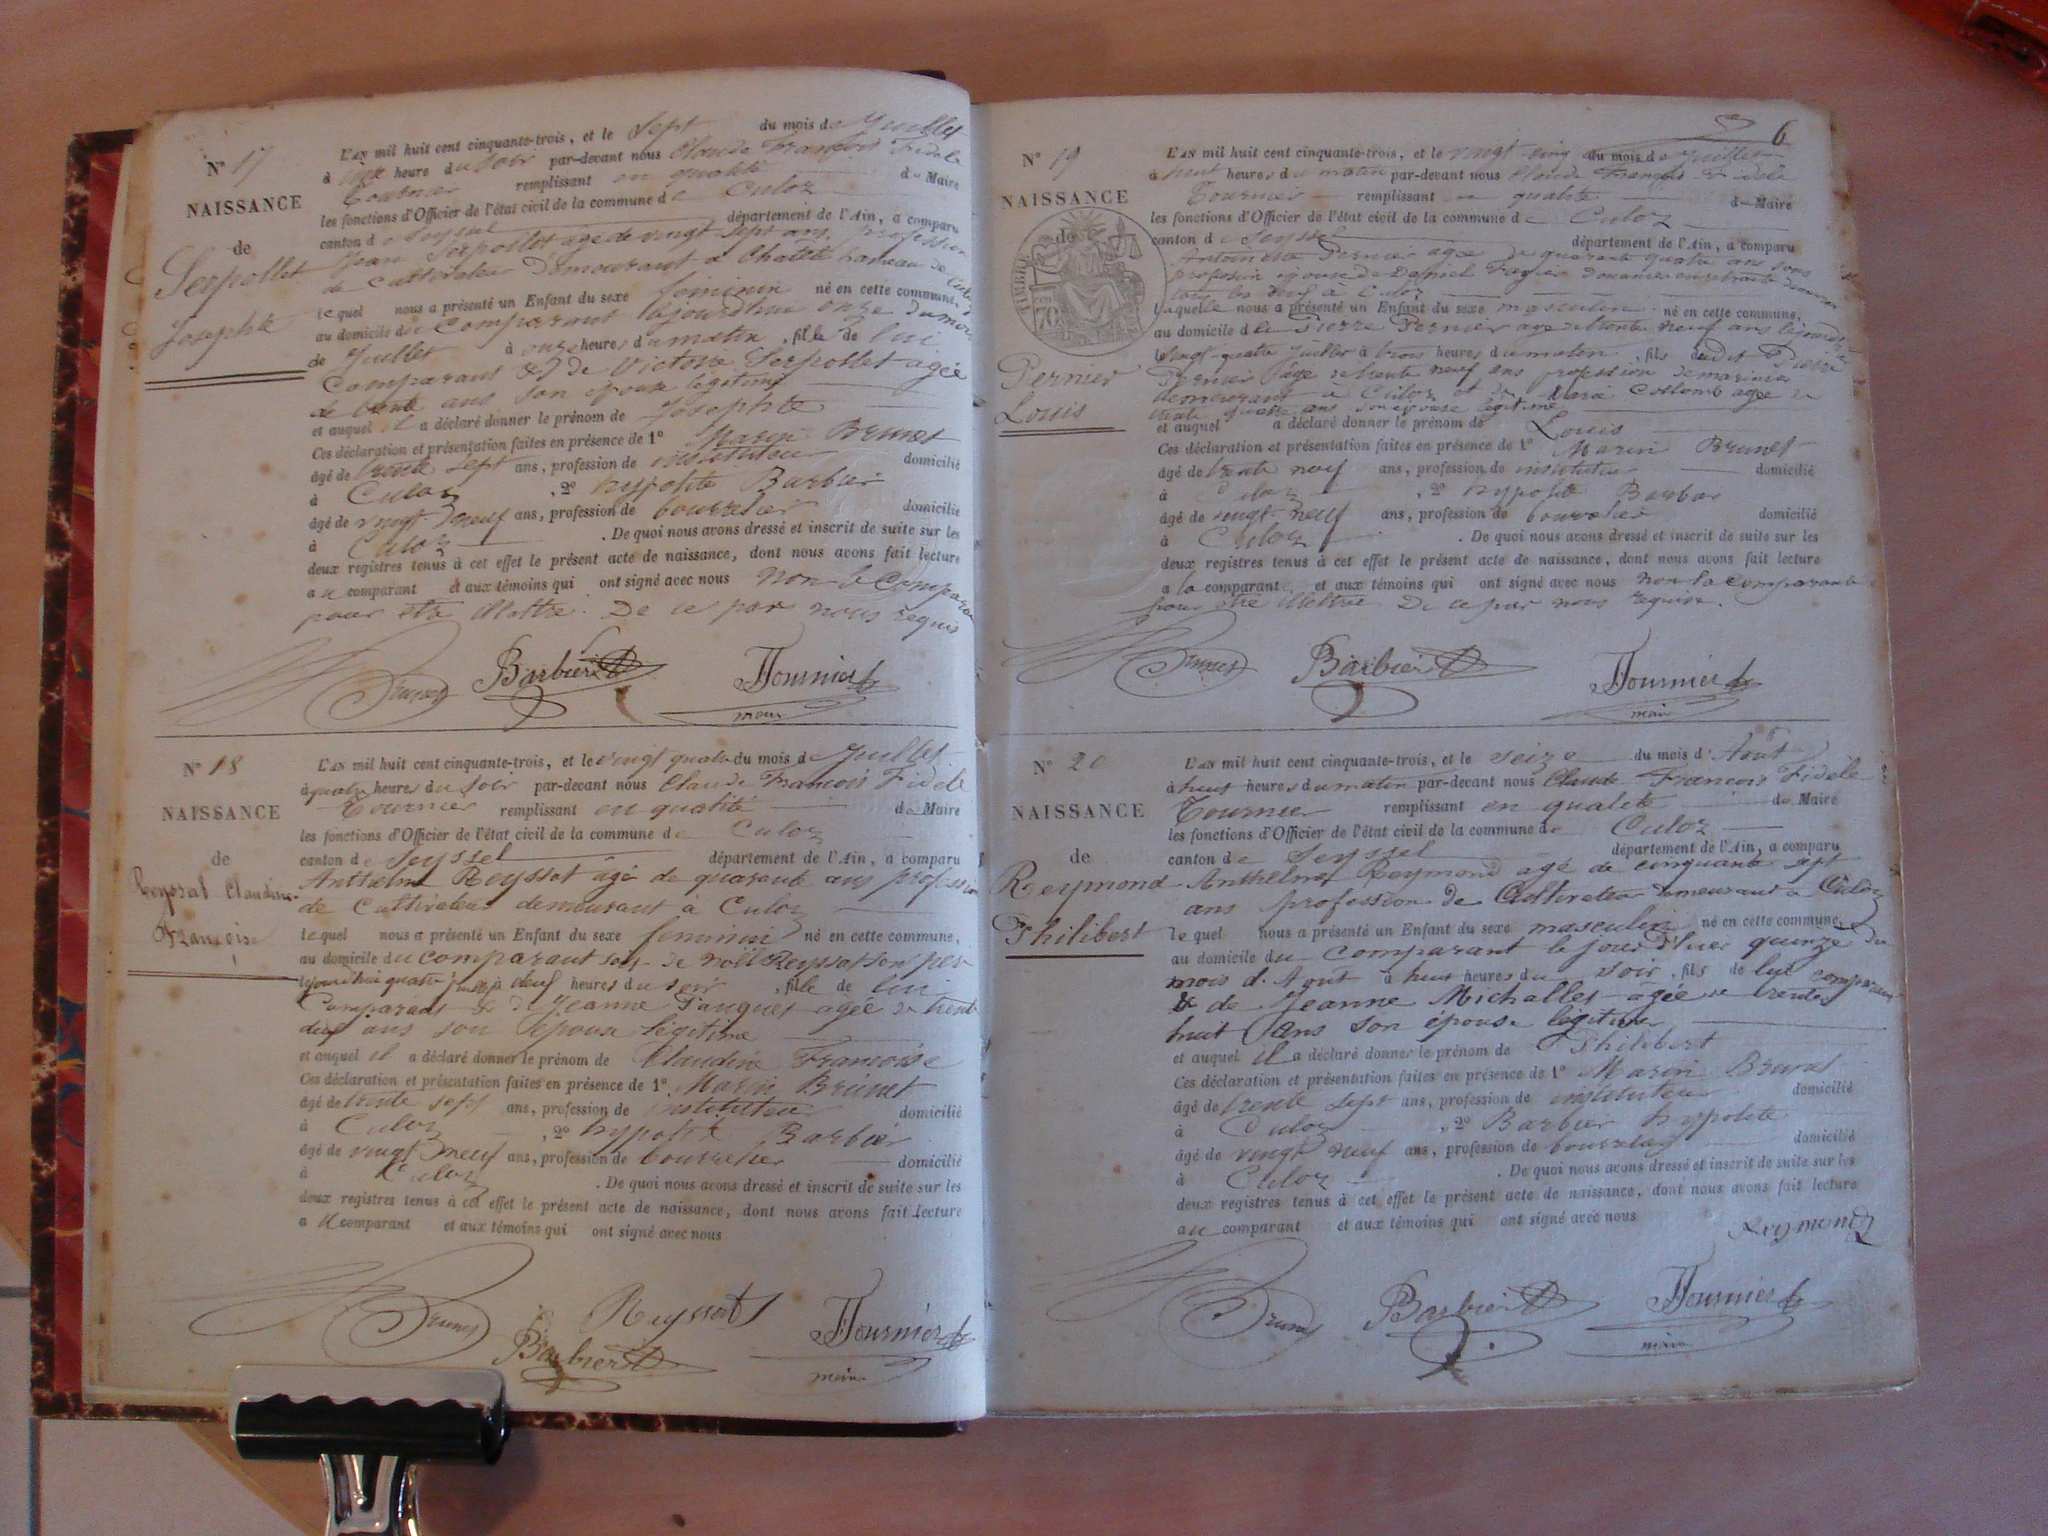 N° 17
NAISSANCE
de
Serpollet
Josephte
L'AN mil huit cent cinquante-trois, et le Sept du mois de Juillet
à heure du Soir par-devant nous Claude François Fidele
Tournier remplissant en qualité de Maire
les fonctions d'Officier de l'état civil de la commune de Culoz
canton de Seyssel département de l'Ain, a comparu
Jean Serpollet agé de vingt sept ans, profession
de Cultivateur Demeurant à Chatel hameau de Culoz
lequel nous a présenté un Enfant du sexe feminin né en cette commune,
au domicile du Comparant onze du mois
de Juillet à onze heures du matin, fille de lui
Comparant & de Victoire Serpollet agée
de trente ans son épouse légitime
et auquel il a déclaré donner le prénom de Josephte
Ces déclaration et présentation faites en présence de 1° Marin Brunet
âgé de trente sept ans, profession de instituteur domicilié
à Culoz, 2° hypolite Barbier
âgé de vingt neuf ans, profession de bourrelier domicilié
à Culoz. De quoi nous avons dressé et inscrit de suite sur les
deux registres tenus à cet effet le présent acte de naissance, dont nous avons fait lecture
au comparant et aux témoins qui ont signé avec nous non le Comparant
pour être illettré. De ce par nous requis
Brunet Barbier Tournier
maire
N° 18
NAISSANCE
de
Reyssat Claudine
Françoise
L'AN mil huit cent cinquante-trois, et le vingt quatre du mois de Juillet
à quatre heures du Soir par-devant nous Claude François Fidele
Tournier remplissant en qualité de Maire
les fonctions d'Officier de l'état civil de la commune de Culoz
canton de Seyssel département de l'Ain, a comparu
Anthelme Reyssat âgé de quarante ans profession
de Cultivateur demeurant à Culoz
lequel nous a présenté un Enfant du sexe feminin né en cette commune,
au domicile du comparant de Noël Reyssat son père
à neuf heures du soir, fille de lui
Comparant & de Jeanne Fauquet agée de trente
ans son épouse légitime
et auquel il a déclaré donner le prénom de Claudine Françoise
Ces déclaration et présentation faites en présence de 1° Marin Brunet
âgé de trente sept ans, profession de instituteur domicilié
à Culoz, 2° hypolite Barbier
âgé de vingt neuf ans, profession de bourrelier domicilié
à Culoz. De quoi nous avons dressé et inscrit de suite sur les
deux registres tenus à cet effet le présent acte de naissance, dont nous avons fait lecture
au comparant et aux témoins qui ont signé avec nous
Brunet Barbier Reyssat Tournier
maire
6
N° 19
NAISSANCE
de
TIMBRE
70
Pernier
Louis
L'AN mil huit cent cinquante-trois, et le vingt cinq du mois de Juillet
à huit heures du matin par-devant nous Claude François Fidele
Tournier remplissant en qualité de Maire
les fonctions d'Officier de l'état civil de la commune de Culoz
canton de Seyssel département de l'Ain, a comparu
Antoinette Pernier agée de quarante quatre ans sans
profession épouse de Daniel douanier en retraite
tous les deux à Culoz
laquelle nous a présenté un Enfant du sexe masculin né en cette commune,
au domicile de Pierre Pernier agé de trente neuf ans
vingt-quatre Juillet à trois heures du matin, fils dudit Pierre
Pernier agé de trente neuf ans profession de marinier
demeurant à Culoz et de Maria Collomb agée de
trente quatre ans son épouse légitime
et auquel a déclaré donner le prénom de Louis
Ces déclaration et présentation faites en présence de 1° Marin Brunet
âgé de trente neuf ans, profession de instituteur domicilié
à Culoz, 2° hypolite Barbier
âgé de vingt-neuf ans, profession de bourrelier domicilié
à Culoz. De quoi nous avons dressé et inscrit de suite sur les
deux registres tenus à cet effet le présent acte de naissance, dont nous avons fait lecture
a la comparante et aux témoins qui ont signé avec nous non la comparante
pour être illettrée De ce par nous requise.
Brunet Barbier Tournier
maire
N° 20
NAISSANCE
de
Reymond
Philibert
L'AN mil huit cent cinquante-trois, et le seize du mois d'Aout
à huit heures du matin par-devant nous Claude François Fidele
Tournier remplissant en qualité de Maire
les fonctions d'Officier de l'état civil de la commune de Culoz
canton de Seyssel département de l'Ain, a comparu
Anthelme Reymond agé de cinquante sept
ans profession de Cultivateur demeurant à Culoz
lequel nous a présenté un Enfant du sexe masculin né en cette commune,
au domicile du comparant le jour d'hier quinze du
mois d'Aout à huit heures du soir, fils de lui comparant
& de Jeanne Michallet agée de trente
huit ans son épouse légitime
et auquel il a déclaré donner le prénom de Philibert
Ces déclaration et présentation faites en présence de 1° Marin Brunet
âgé de trente sept ans, profession de instituteur domicilié
à Culoz, 2° Barbier hypolite
âgé de vingt neuf ans, profession de bourrelier domicilié
à Culoz. De quoi nous avons dressé et inscrit de suite sur les
deux registres tenus à cet effet le présent acte de naissance, dont nous avons fait lecture
au comparant et aux témoins qui ont signé avec nous Reymond
Brunet Barbier Tournier
maire